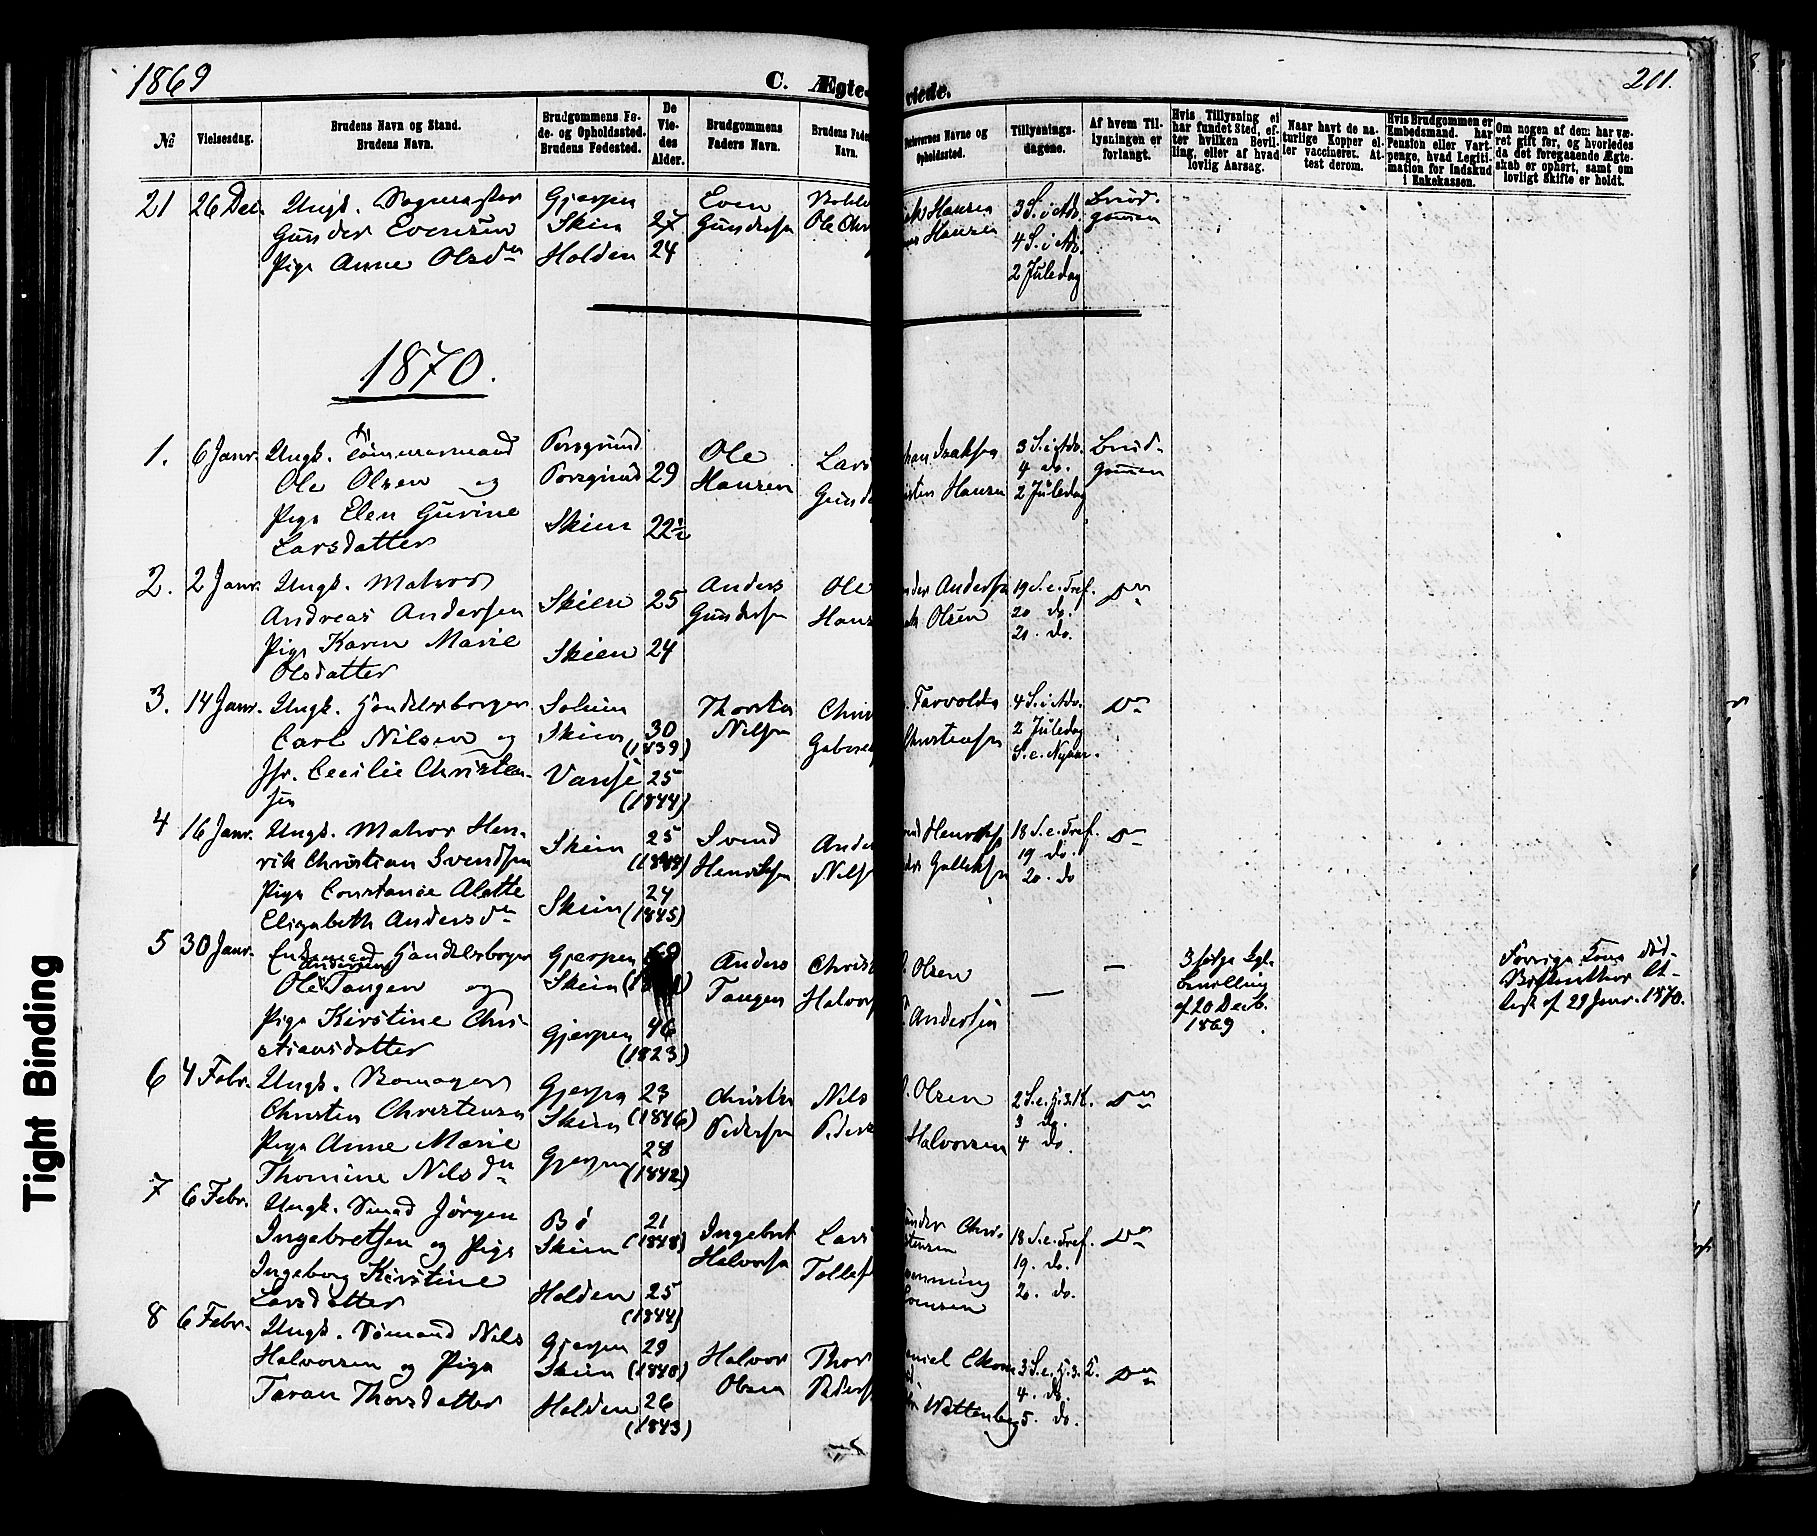 1869
C. Ægte
viede.
201.
№
Vielsesdag.
Brudens Navn og Stand.
Brudens Navn.
Brudgommens Fø-
de- og Opholdssted.
Brudens Fødested.
De
Vie-
des
Alder.
Brudgommens
Faders Navn.
Brudens Fade
Navn.
Forlovernes Navne og
Opholdssted.
Tillysnings-
dagene.
Af hvem Til-
lysningen er
forlangt.
Hvis Tillysning ei
har fundet Sted, ef-
ter hvilken Bevil-
ling, eller af hvad
lovlig Aarsag.
Naar havt de na-
turlige Kopper el-
ler vaccineret. At-
test derom.
Hvis Brudgommen er
Embedsmand, har
Pension eller Vart-
penge, hvad Legiti-
mation for Indskud
i Enkekassen.
Om nogen af dem har væ-
ret gift før, og hvorledes
da det foregaaende Ægte-
skab er ophørt, samt om
lovligt Skifte er holdt.
21 26 Dec. Ungk. Sagmester
Gunder Evensen
Pige Anne Olsdtr
Gjerpen
Skien 27
Holden 24
Even
Gundersen
Ole Chr
Hansen
Hansen
3 S. i Adv.
4 S. i Adv.
2 Juledag
Brud-
gommen
1870.
1. 6 Janr. Ungk. Tømmermand
Ole Olsen og
Pige Elen Gurine
Larsdatter
Porsgrund
Porsgrund 29
Skien 22½
Ole
Hansen
Lars
Gund
Isaksen
Hansen
3 S. i Adv.
4 do.
2 Juledag
Brud-
gommen
2. 2 Janr. Ungk. Matros
Andreas Andersen
Pige Karen Marie
Olsdatter
Skien 25
Skien 24
Anders
Gundersen
Ole
Hans
nder Andersen
Olsen
19 S. e. Tref.
20 do.
21. do.
Do
3. 14 Janr. Ungk. Handelsborger
Carl Nilsen og
Jfr. Cecilie Christen-
sen
Solum
Skien 30
(1839)
Vanse 25
(1844)
Thorsten
Nilsen
Chris
Gabriel
Tarvolds
Christensen
4 S. i Adv.
2 Juledag
S. e. Nytaar.
Do
4 16 Janr. Ungk. Matros Hen-
rik Christian Svendsen
Pige Constance Alette
Elisabeth Andersdtr
Skien 25
Skien 24
(1845)
Svend
Henriksen
Ande
Nilse
Henriksen
Gulliksen
18 S. e. Tref.
19 do.
20. do
Do
5 30 Janr. Enkemand Handelsborger
Andersen
Ole Tangen og
Pige Kirstine Chri-
stiansdatter
Gjerpen
Skien
Gjerpen 46
(1823)
Anders
Tangen
Christ
Halvors
Olsen
Andersen
—
—
3 ifølge Kgl.
Bevilling
af 20 Decb.
1869
Forrige Kone død.
Skifteretten At-
test af 29 Janr. 1870.
6 4 Febr. Ungk. Bomager
Christen Christensen
Pige Anne Marie
Thomine Nilsdtr
Gjerpen 23
Skien (1846)
28
Gjerpen (1842)
Christen
Pedersen
Nils
Peders
Olsen
Halvorsen
2 S. e. H. 3. K.
3 do.
4 do.
Do
7 6 Febr. Ungk. Smed Jørgen
Ingebretsen og Pige
Ingeborg Kirstine
Larsdatter
Bø 21
Skien (1848)
Holden 25
(1844)
Ingebret
Halvorsen
Lars
Tollef
ander Chri-
stensen
18 S. e. Tref.
19. do.
20. do.
Do
8 6 Febr. Ungk. Sømand Nils
Halvorsen og Pige
Taran Thorsdatter
Gjerpen 29
Skien (1840)
Holden 26
(1843)
Halvor
Olsen
Thor
Peders
aniel Ekorn
Wattenberg
3 S. e. H. 3. K.
4. do.
5. do.
Do
Tight Binding